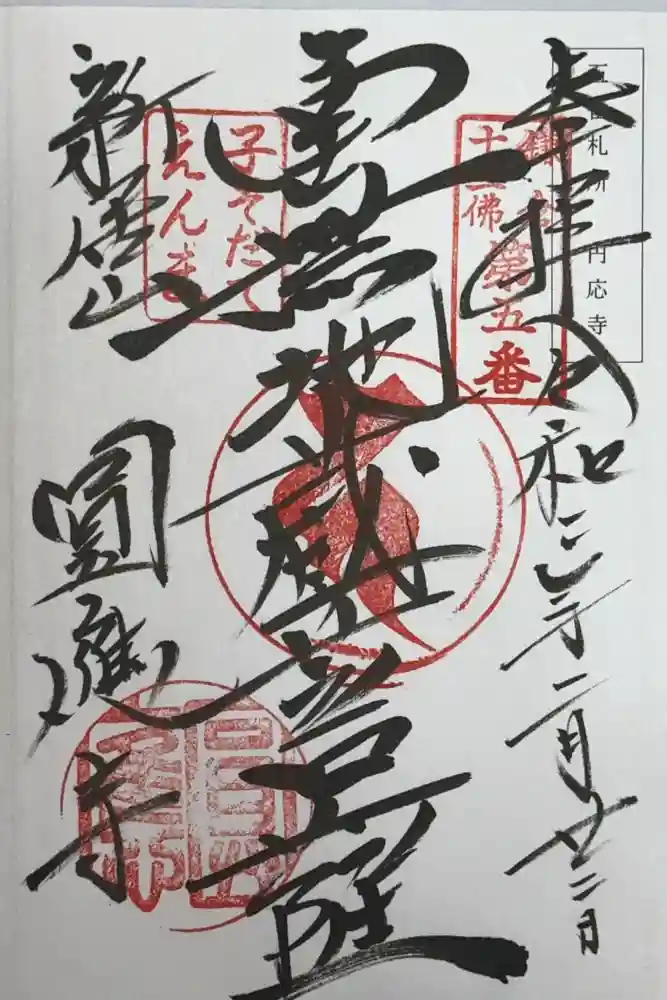 五番札所 円応寺
奉拝 令和 年二月廿二日
鎌倉
十三佛
第五番
南無地蔵菩薩
子そだて
えんま
新居山 圓應寺